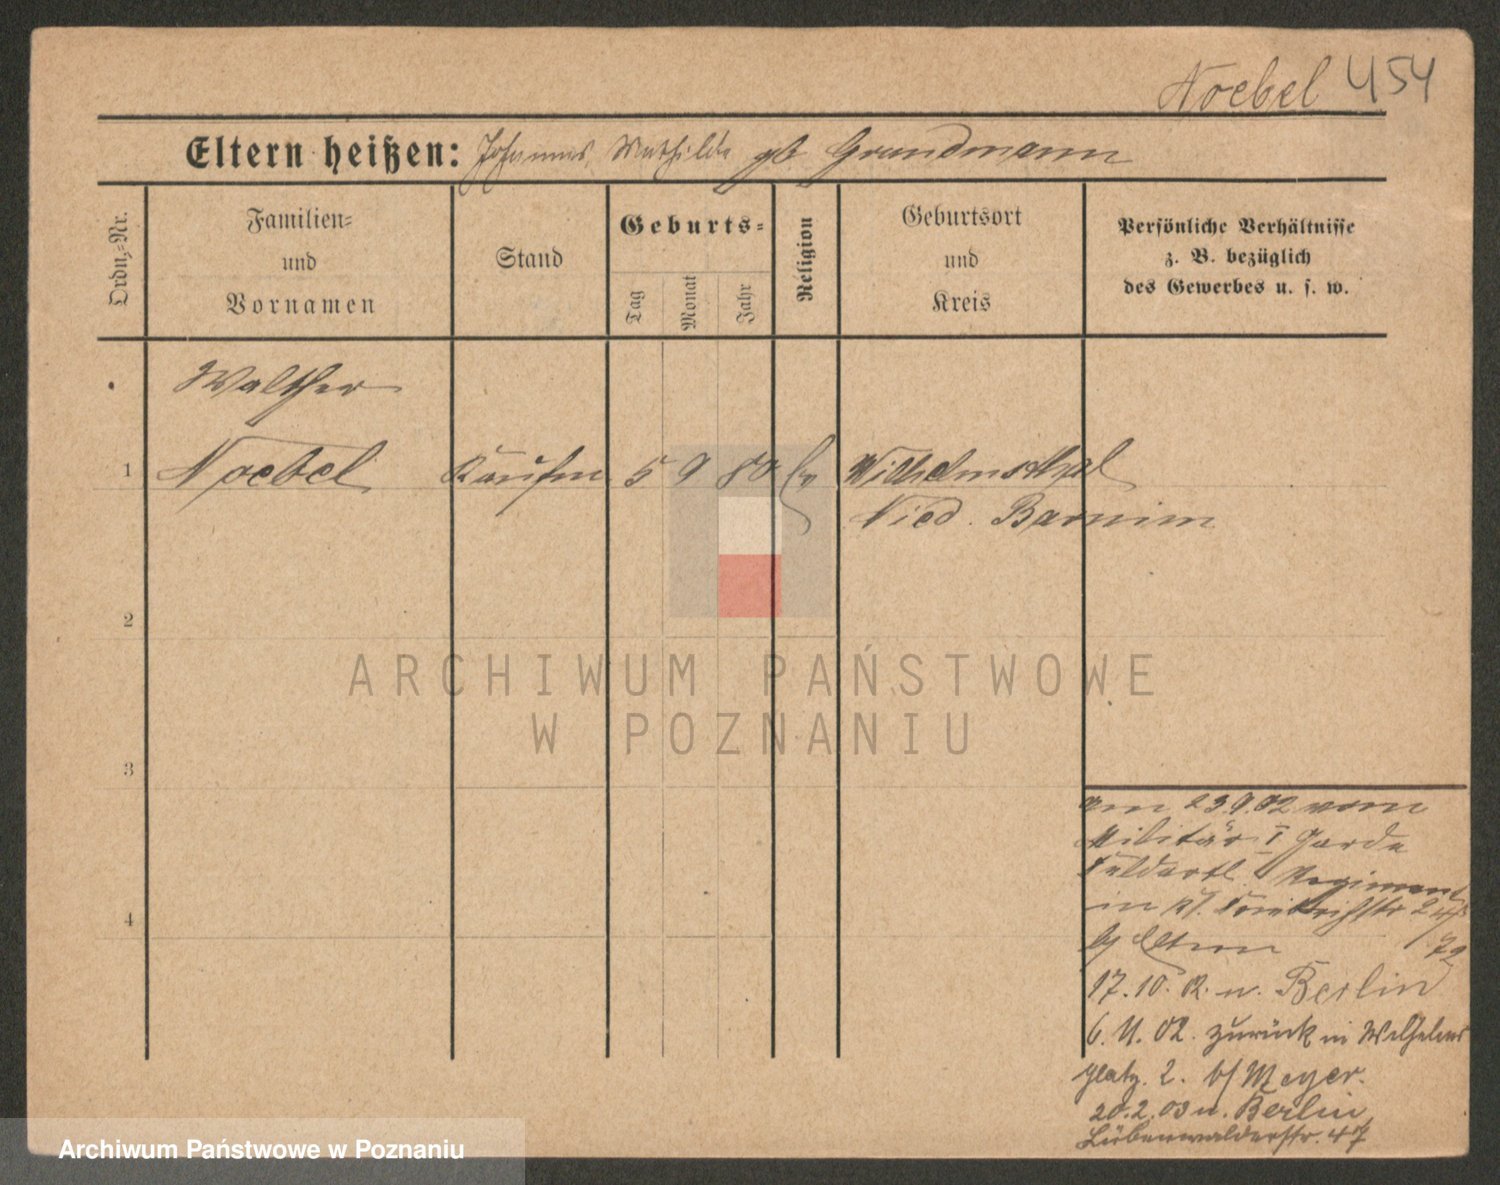 Noebel 454
Eltern heißen: Johannes, Mathilde gb. Grundmann
Ordn.-Nr.
Familien-
und
Vornamen
Stand
Geburts-
Tag
Monat
Jahr
Religion
Geburtsort
und
Kreis
Persönliche Verhältnisse
z. B. bezüglich
des Gewerbes u. s. w.
Walther
1 Noebel Kaufm 5 9 80 Wilhelmsthal
Nied. Barnim
2
3
4
am 23.9.02 vom
Militär I Garde
Feldartl. Regiment
in
b/ Eltern 72
17.10.02. n. Berlin
6.11.02. zurück in Wilhelms
platz. 2. b/ Meyer.
20.2.03 n. Berlin,
Liebenwalderstr. 47
ARCHIWUM PAŃSTWOWE
W POZNANIU
Archiwum Państwowe w Poznaniu